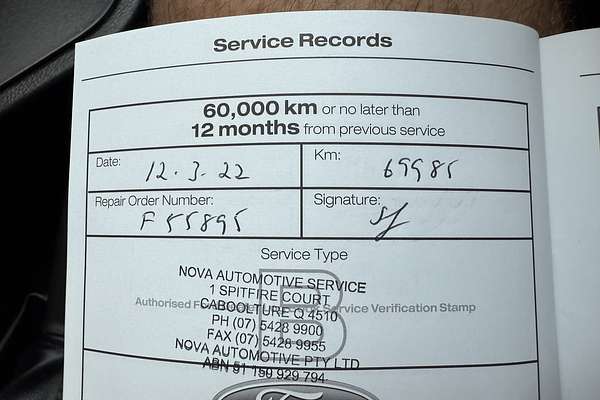 Service Records
60,000 km or no later than
12 months from previous service
Date: 12.3.22
Km: 69985
Repair Order Number: F 55895
Signature:
Service Type
B
NOVA AUTOMOTIVE SERVICE
1 SPITFIRE COURT
CABOOLTURE Q 4510
Authorised F Service Verification Stamp
PH (07) 5428 9900
FAX (07) 5428 9955
NOVA AUTOMOTIVE PTY LTD
ABN 91 150 929 794